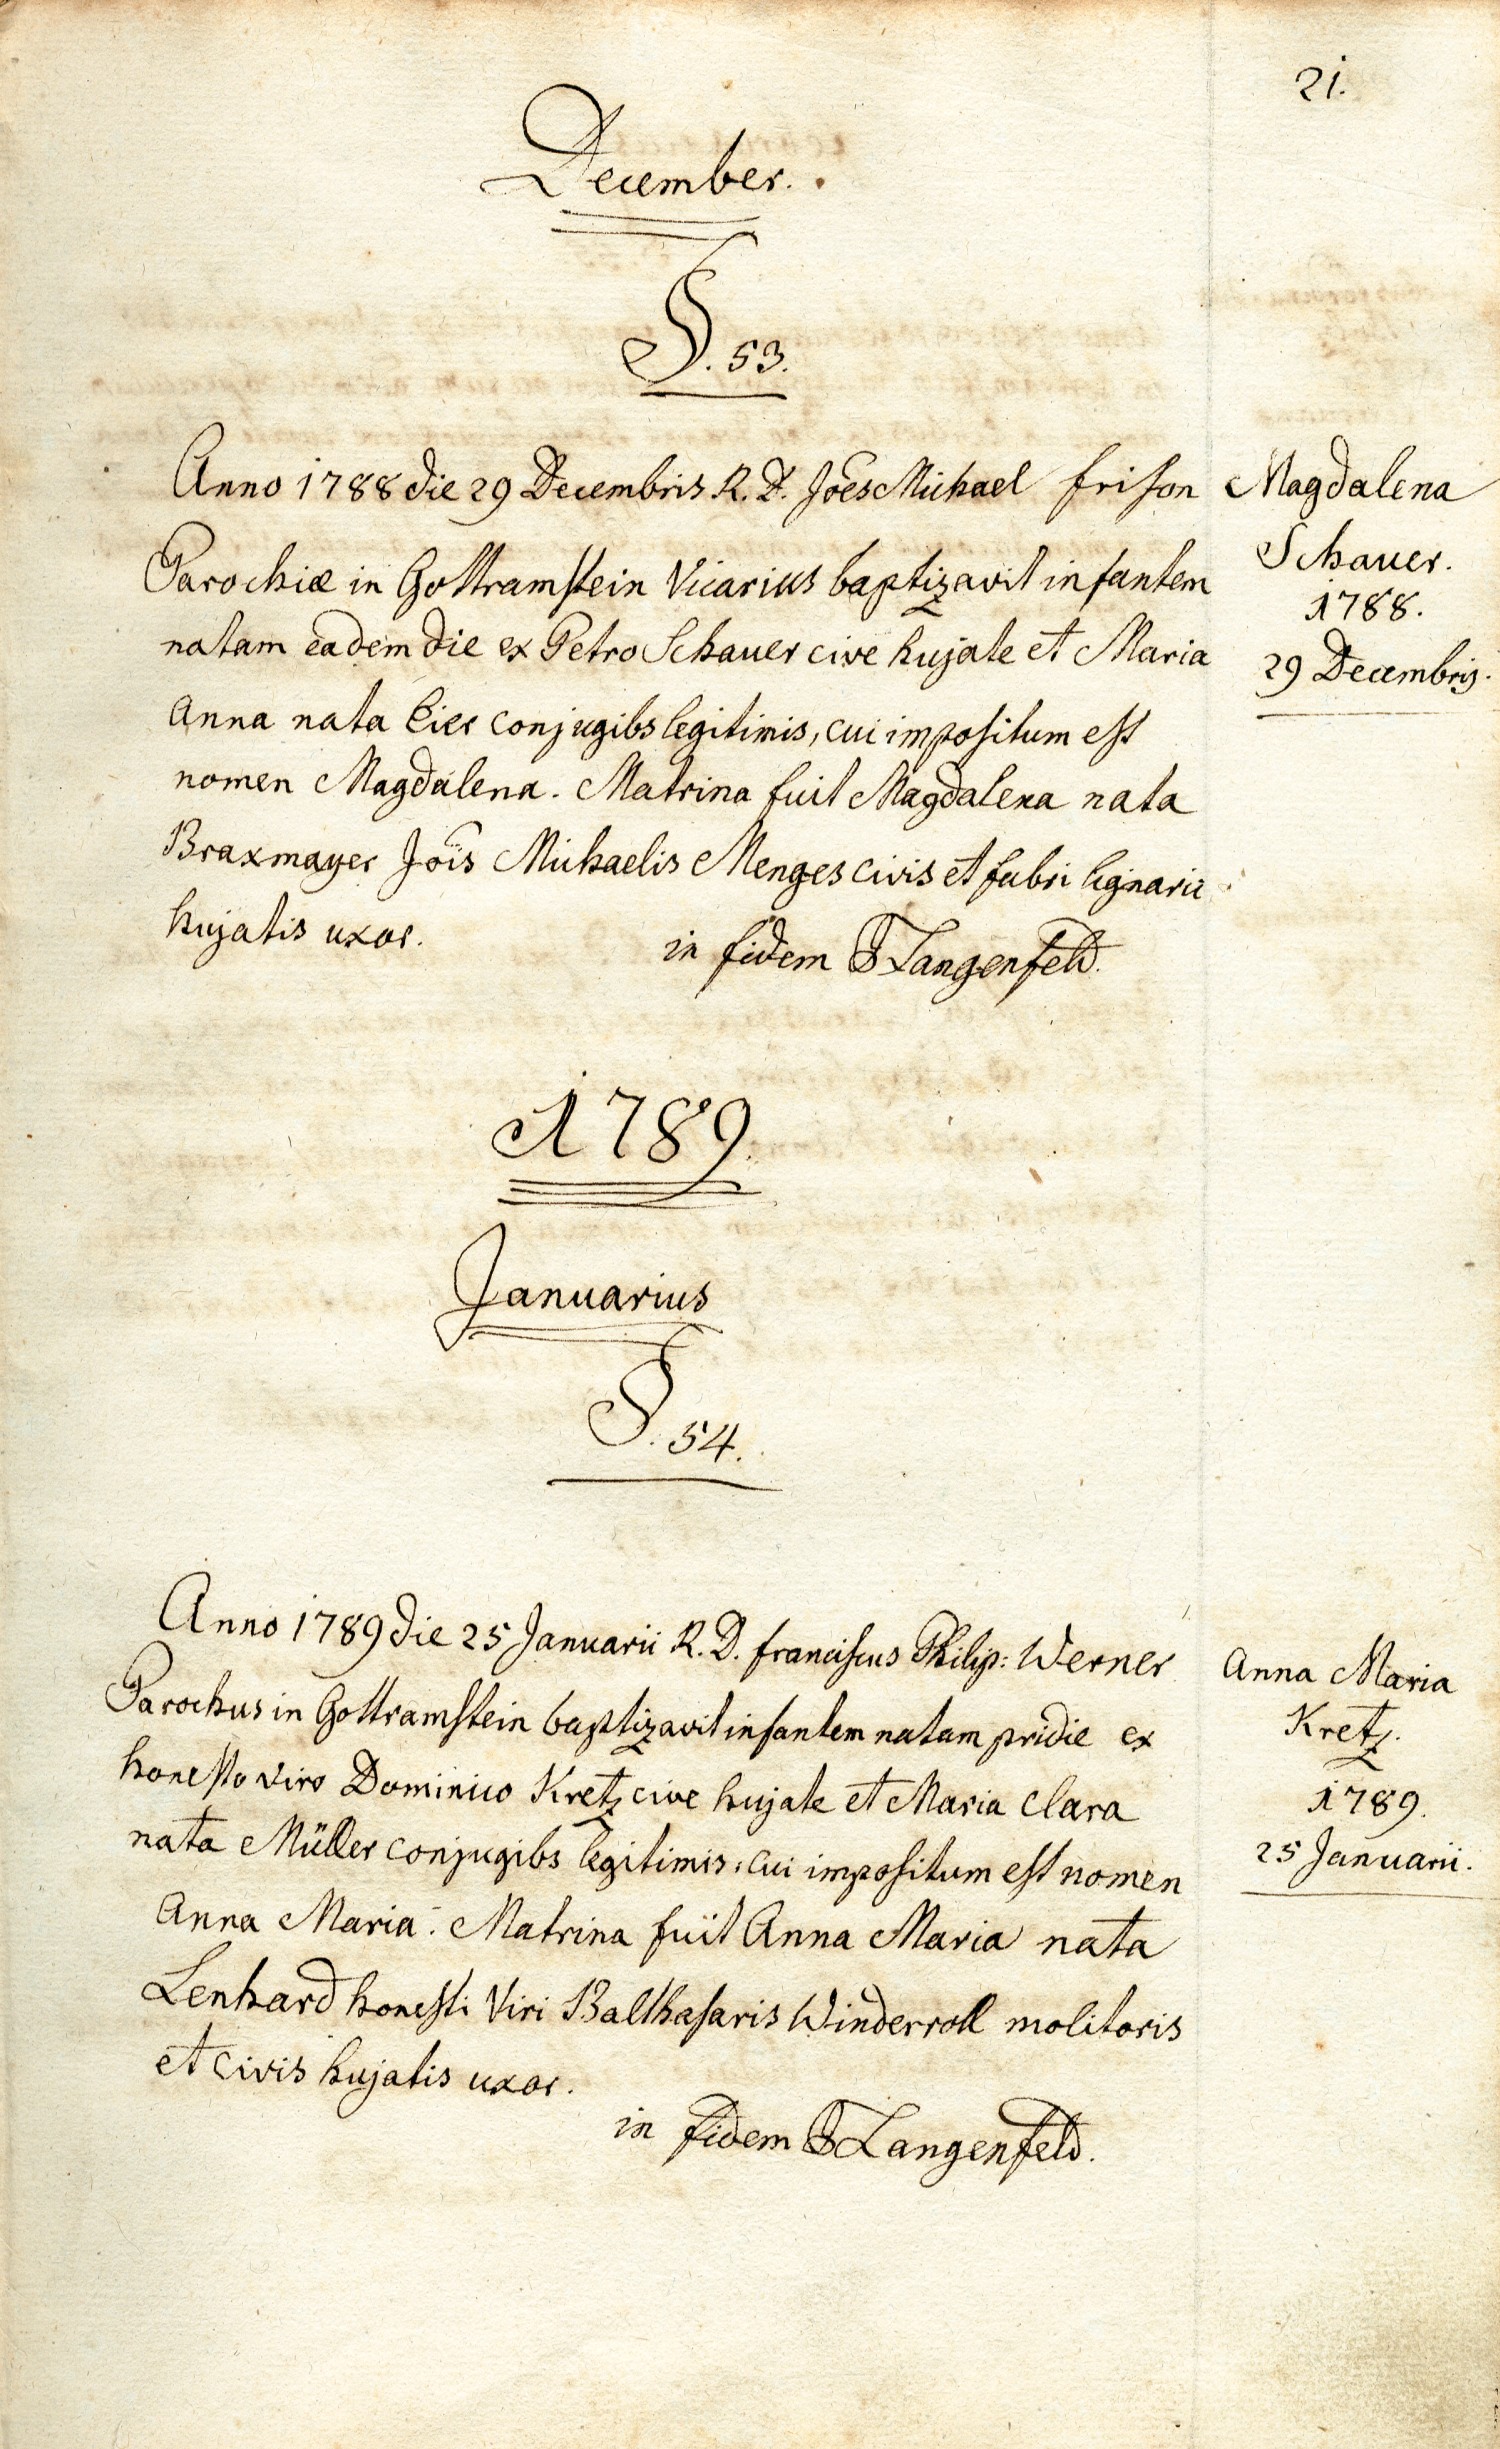 21.
December.
§. 53.
Anno 1788 die 29 Decembris R. D. Joẽs Michael Frison
Parochiæ in Gottramstein Vicarius baptizavit infantem
natam eadem die ex Petro Schauer cive hujate et Maria
Anna nata Eier conjugibs legitimis, cui impositum est
nomen Magdalena. Matrina fuit Magdalena nata
Braxmayer Jois Michaelis Menges civis et fabri lignarii
hujatis uxor.
in fidem Langenfeld.
Magdalena
Schauer.
1788.
29 Decembris.
1789.
Januarius
§. 54.
Anno 1789 die 25 Januarii R. D. Franciscus Philip: Werner
Parochus in Gottramstein baptizavit infantem natam pridie ex
honesto viro Dominico Kretz cive hujate et Maria Clara
nata Müller conjugibs legitimis, cui impositum est nomen
Anna Maria. Matrina fuit Anna Maria nata
Lenhard honesti Viri Balthasaris Winderroll molitoris
et civis hujatis uxor.
in fidem Langenfeld.
Anna Maria
Kretz.
1789.
25 Januarii.